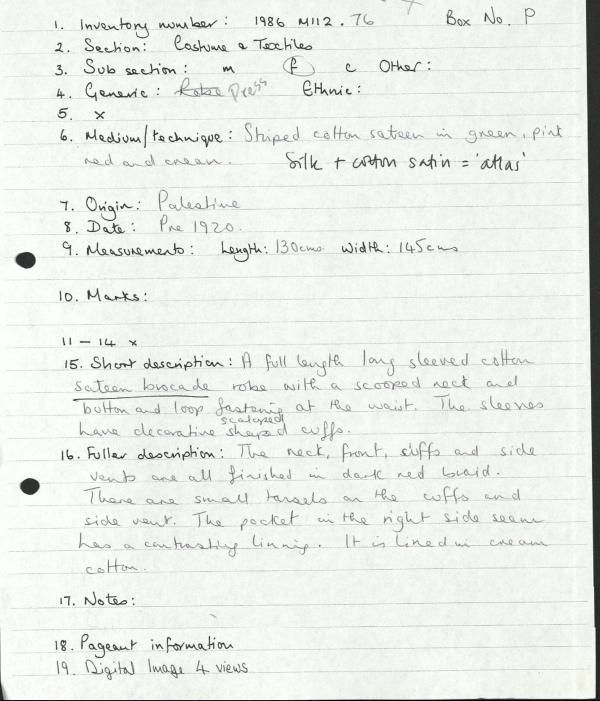 1. Inventory number: 1986 M112.76 Box No. P
2. Section: Costume & Textiles
3. Sub section: m f c Other:
4. Generic: Robe Dress Ethnic:
5. x
6. Medium/technique: Striped cotton sateen in green, pink
red and cream. Silk + cotton satin = 'atlas'
7. Origin: Palestine
8. Date: Pre 1920.
9. Measurements: Length: 130cms Width: 145cms
10. Marks:
11 - 14 x
15. Short description: A full length long sleeved cotton
sateen brocade robe with a scooped neck and
button and loop fastening at the waist. The sleeves
have decorative scalloped shaped cuffs.
16. Fuller description: The neck, front, cuffs and side
vents are all finished in dark red braid.
There are small tassels on the cuffs and
side vent. The pocket in the right side seam
has a contrasting lining. It is lined in cream
cotton.
17. Notes:
18. Pageant information
19. Digital Image 4 views